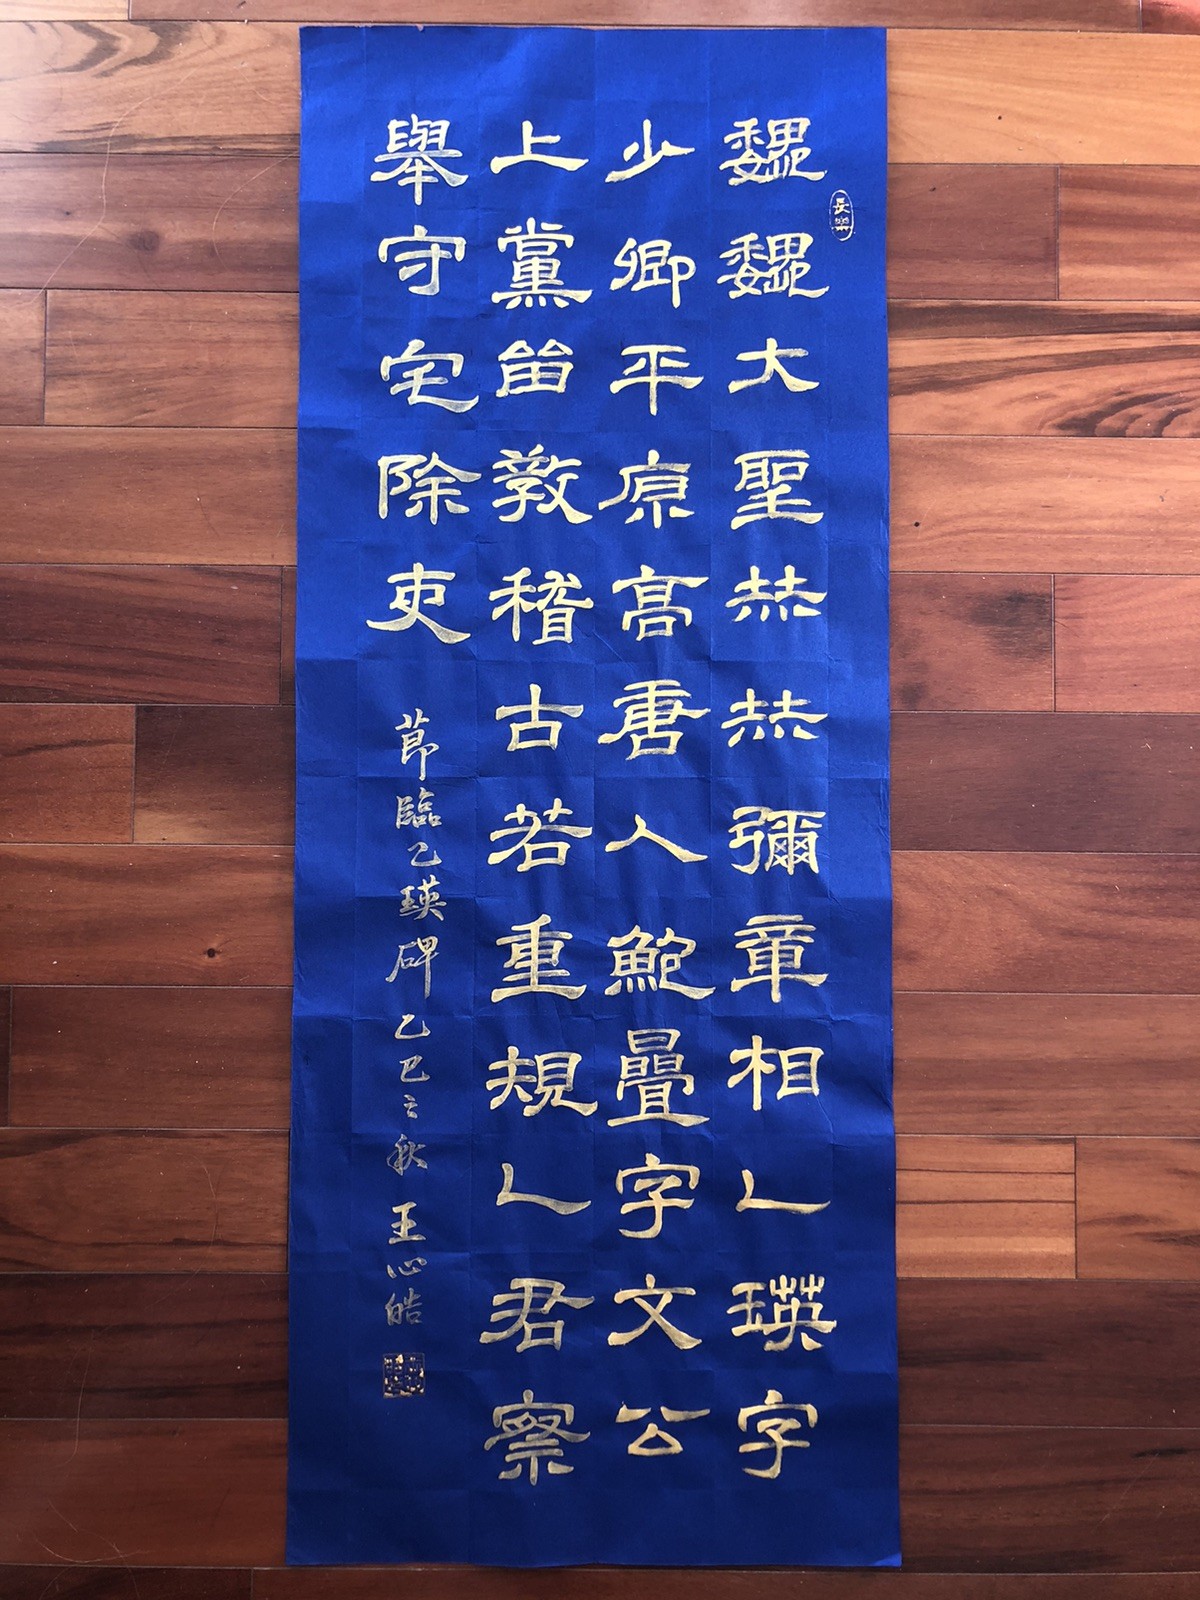 魏魏大聖赫赫彌章相乙瑛字
少卿平原高唐人鮑疊字文公
上黨留敦稽古若重規乙君察
舉守宅除吏
節臨乙瑛碑乙巳之秋王心皓
長樂